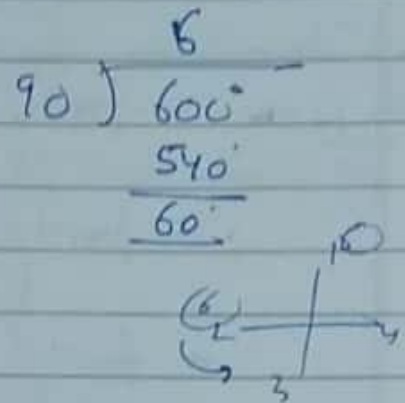 6
90 ) 600°
540°
60°
1
6
2
4
3